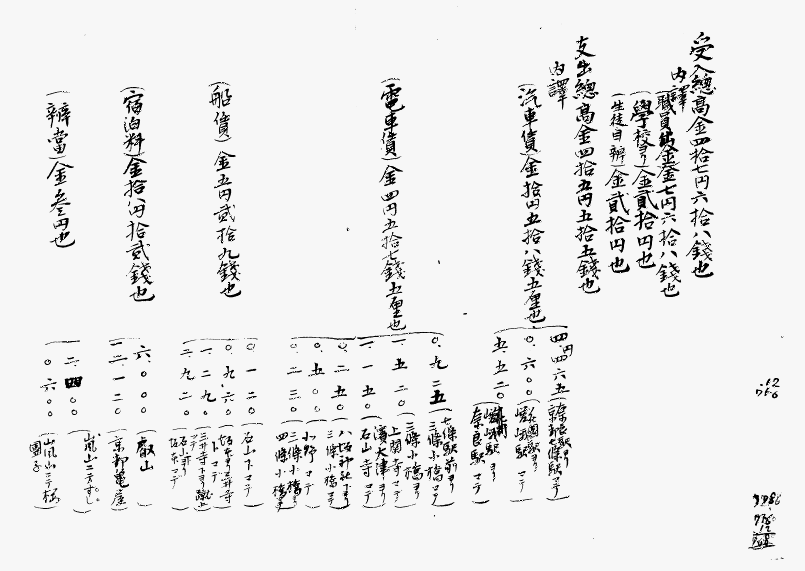 受入總高金四拾七円六拾八錢也
内譯
(職員金七円六拾八錢也
(學校ヨリ)金貳拾円也
(生徒自辨)金貳拾円也
支出總高金四拾五円五拾五錢也
内譯
(汽車賃)金拾円五拾八錢五厘也
四円四六五(奈良駅ヨリ七條駅マデ)
〇.六〇〇(花園駅ヨリ嵯峨駅マデ)
五.五二〇(嵯峨駅ヨリ奈良駅マデ)
(電車賃)金四円五拾七錢五厘也
〇.九二五(七條駅前ヨリ三條小橋マデ)
一.五二〇(三條小橋ヨリ上関寺マデ)
一.一五〇(濱大津ヨリ石山寺マデ)
〇.二五〇(八坂神社下ヨリ三條小橋マデ)
〇.五〇〇(小野マデ)
〇.二三〇(三條小橋ヨリ四條小橋マデ)
(船賃)金五円貳拾九錢也
〇.一二〇(石山下マデ)
〇.九六〇(坂本ヨリ三井寺下マデ)
一.二九〇(三井寺下ヨリ マデ)
二.九二〇(石山寺ヨリ坂本マデ)
(宿泊料)金拾八円拾貳錢也
六.〇〇〇(叡山)
一二.一二〇(京都亀屋)
(辨當)金參円也
二.四〇〇(嵐山ニテすし)
〇.六〇〇(嵐山ニテ桜團子)
.12